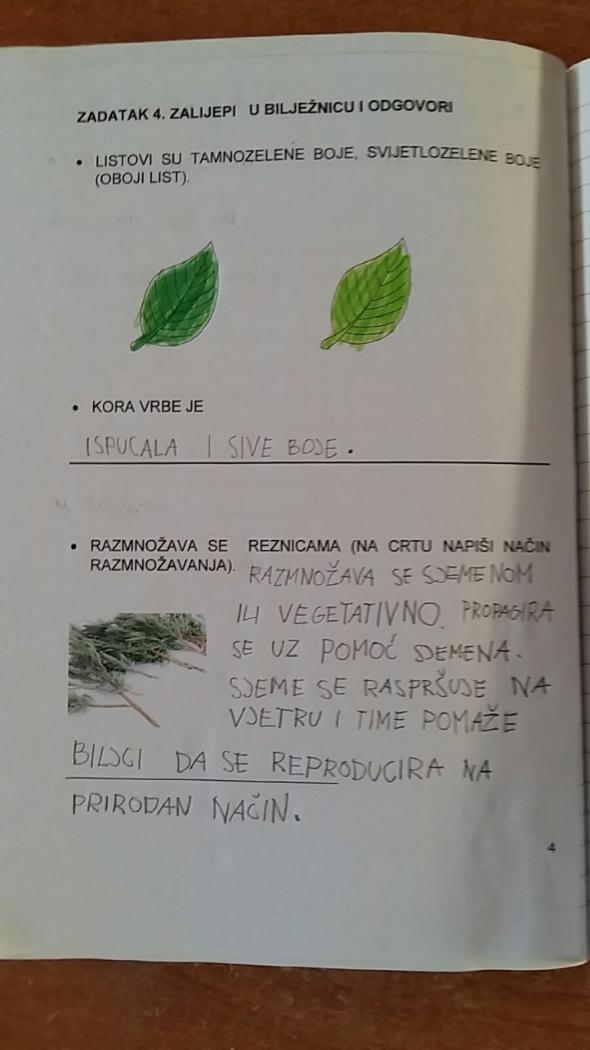 ZADATAK 4. ZALIJEPI U BILJEŽNICU I ODGOVORI
• LISTOVI SU TAMNOZELENE BOJE, SVIJETLOZELENE BOJE
(OBOJI LIST).
• KORA VRBE JE
ISPUCALA I SIVE BOJE.
• RAZMNOŽAVA SE REZNICAMA (NA CRTU NAPIŠI NAČIN
RAZMNOŽAVANJA). RAZMNOŽAVA SE SJEMENOM
ILI VEGETATIVNO. PROPAGIRA
SE UZ POMOĆ SJEMENA.
SJEME SE RASPRŠUJE NA
VJETRU I TIME POMAŽE
BILJCI DA SE REPRODUCIRA NA
PRIRODAN NAČIN.
4